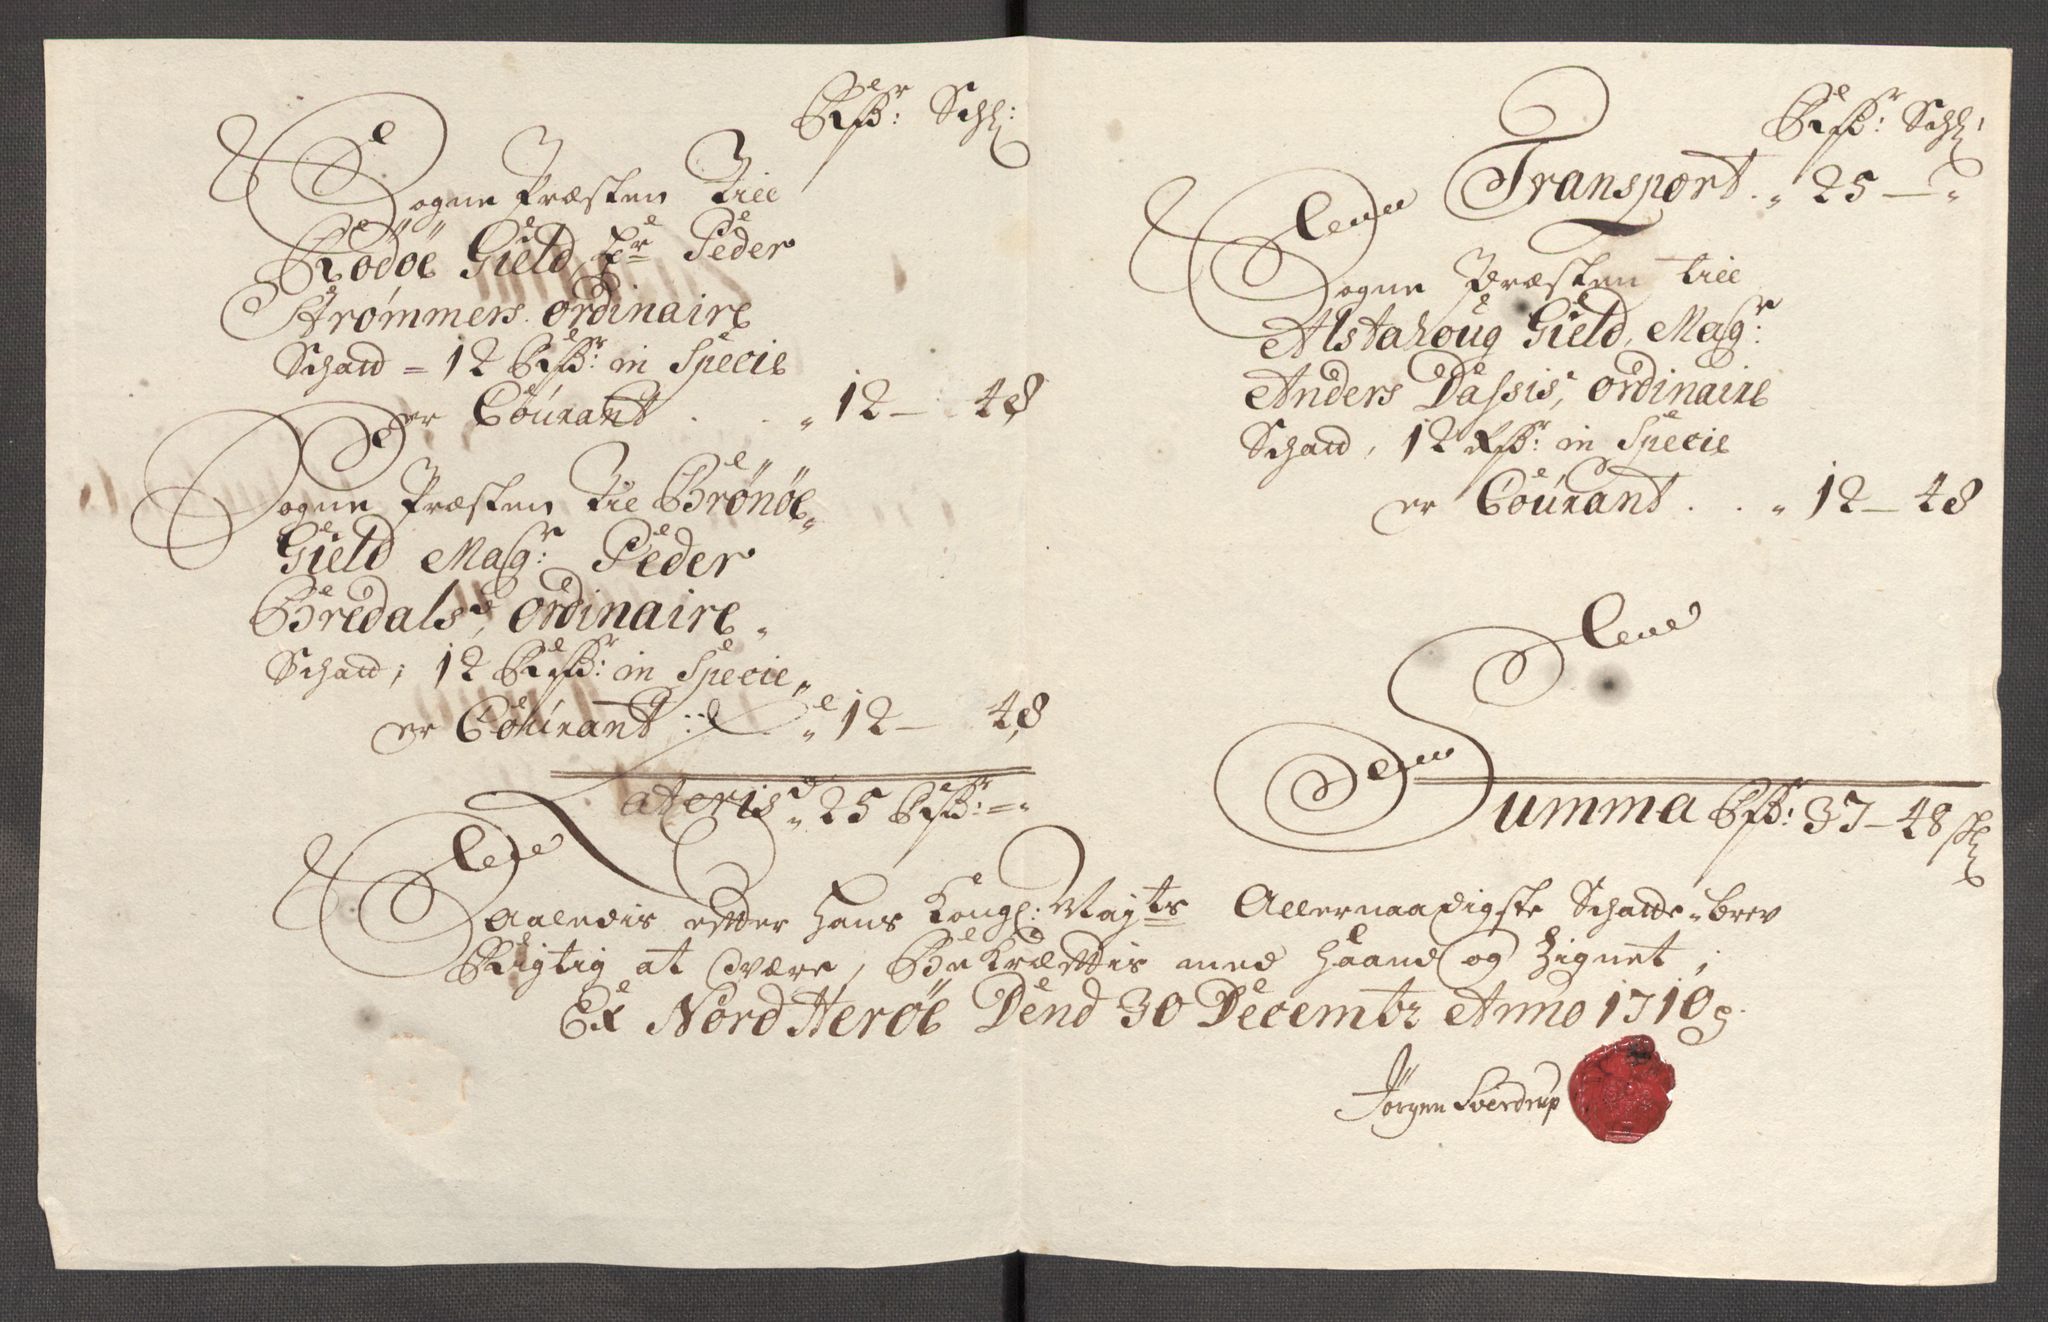 Rdr: Sch:
Sogne Præsten Till
Rödöe Gield hr Peder
Strømmers ordinaire
Schatt = 12 Rdr: in Specie
er Courant . . „ 12 — 48
Sogne Præsten Till Brönöe
Gield Magr: Peder
Bredals, ordinaire
Schatt; 12 Rdr: in Specie
er Courant „ 12 — 48
Lateris „ 25 Rdr: = „
Rdr: Sch:
Transport . „ 25 — „
Sogne Præsten till
Alstahoug Gield, Magr:
Anders Dassis, ordinaire
Schatt, 12 Rdr: in Specie
er Courant . . „ 12 — 48
Summa Rdr: 37 — 48 sh
Saaledis efter Hans Kongl: Mayts Allernaadigste Schatte-brev
Rigtig at være, Bekræftis med Haand og Zignet,
Ex Nord Heröe Dend 30 Decembr Anno 1710
Jörgen Sverdrup